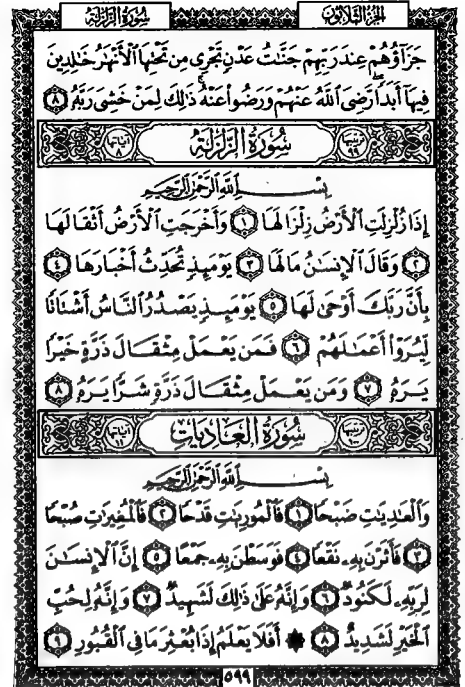 سُورَةُ الزَّلْزَلَةِ
الجُزْءُ الثَّلَاثُونَ
جَزَآؤُهُمْ عِندَ رَبِّهِمْ جَنَّٰتُ عَدْنٍ تَجْرِى مِن تَحْتِهَا ٱلْأَنْهَٰرُ خَٰلِدِينَ
فِيهَآ أَبَدًا رَّضِىَ ٱللَّهُ عَنْهُمْ وَرَضُوا۟ عَنْهُ ذَٰلِكَ لِمَنْ خَشِىَ رَبَّهُۥ ٨
ترتيبها ٩٩ سُورَةُ الزَّلْزَلَةِ آياتها ٨
بِسْمِ ٱللَّهِ ٱلرَّحْمَٰنِ ٱلرَّحِيمِ
إِذَا زُلْزِلَتِ ٱلْأَرْضُ زِلْزَالَهَا ١ وَأَخْرَجَتِ ٱلْأَرْضُ أَثْقَالَهَا
٢ وَقَالَ ٱلْإِنسَٰنُ مَا لَهَا ٣ يَوْمَئِذٍ تُحَدِّثُ أَخْبَارَهَا ٤
بِأَنَّ رَبَّكَ أَوْحَىٰ لَهَا ٥ يَوْمَئِذٍ يَصْدُرُ ٱلنَّاسُ أَشْتَاتًا
لِّيُرَوْا۟ أَعْمَٰلَهُمْ ٦ فَمَن يَعْمَلْ مِثْقَالَ ذَرَّةٍ خَيْرًا
يَرَهُۥ ٧ وَمَن يَعْمَلْ مِثْقَالَ ذَرَّةٍ شَرًّا يَرَهُۥ ٨
ترتيبها سُورَةُ العَادِيَاتِ آياتها
بِسْمِ ٱللَّهِ ٱلرَّحْمَٰنِ ٱلرَّحِيمِ
وَٱلْعَٰدِيَٰتِ ضَبْحًا ١ فَٱلْمُورِيَٰتِ قَدْحًا ٢ فَٱلْمُغِيرَٰتِ صُبْحًا
٣ فَأَثَرْنَ بِهِۦ نَقْعًا ٤ فَوَسَطْنَ بِهِۦ جَمْعًا ٥ إِنَّ ٱلْإِنسَٰنَ
لِرَبِّهِۦ لَكَنُودٌ ٦ وَإِنَّهُۥ عَلَىٰ ذَٰلِكَ لَشَهِيدٌ ٧ وَإِنَّهُۥ لِحُبِّ
ٱلْخَيْرِ لَشَدِيدٌ ٨ ۞ أَفَلَا يَعْلَمُ إِذَا بُعْثِرَ مَا فِى ٱلْقُبُورِ ٩
٥٩٩